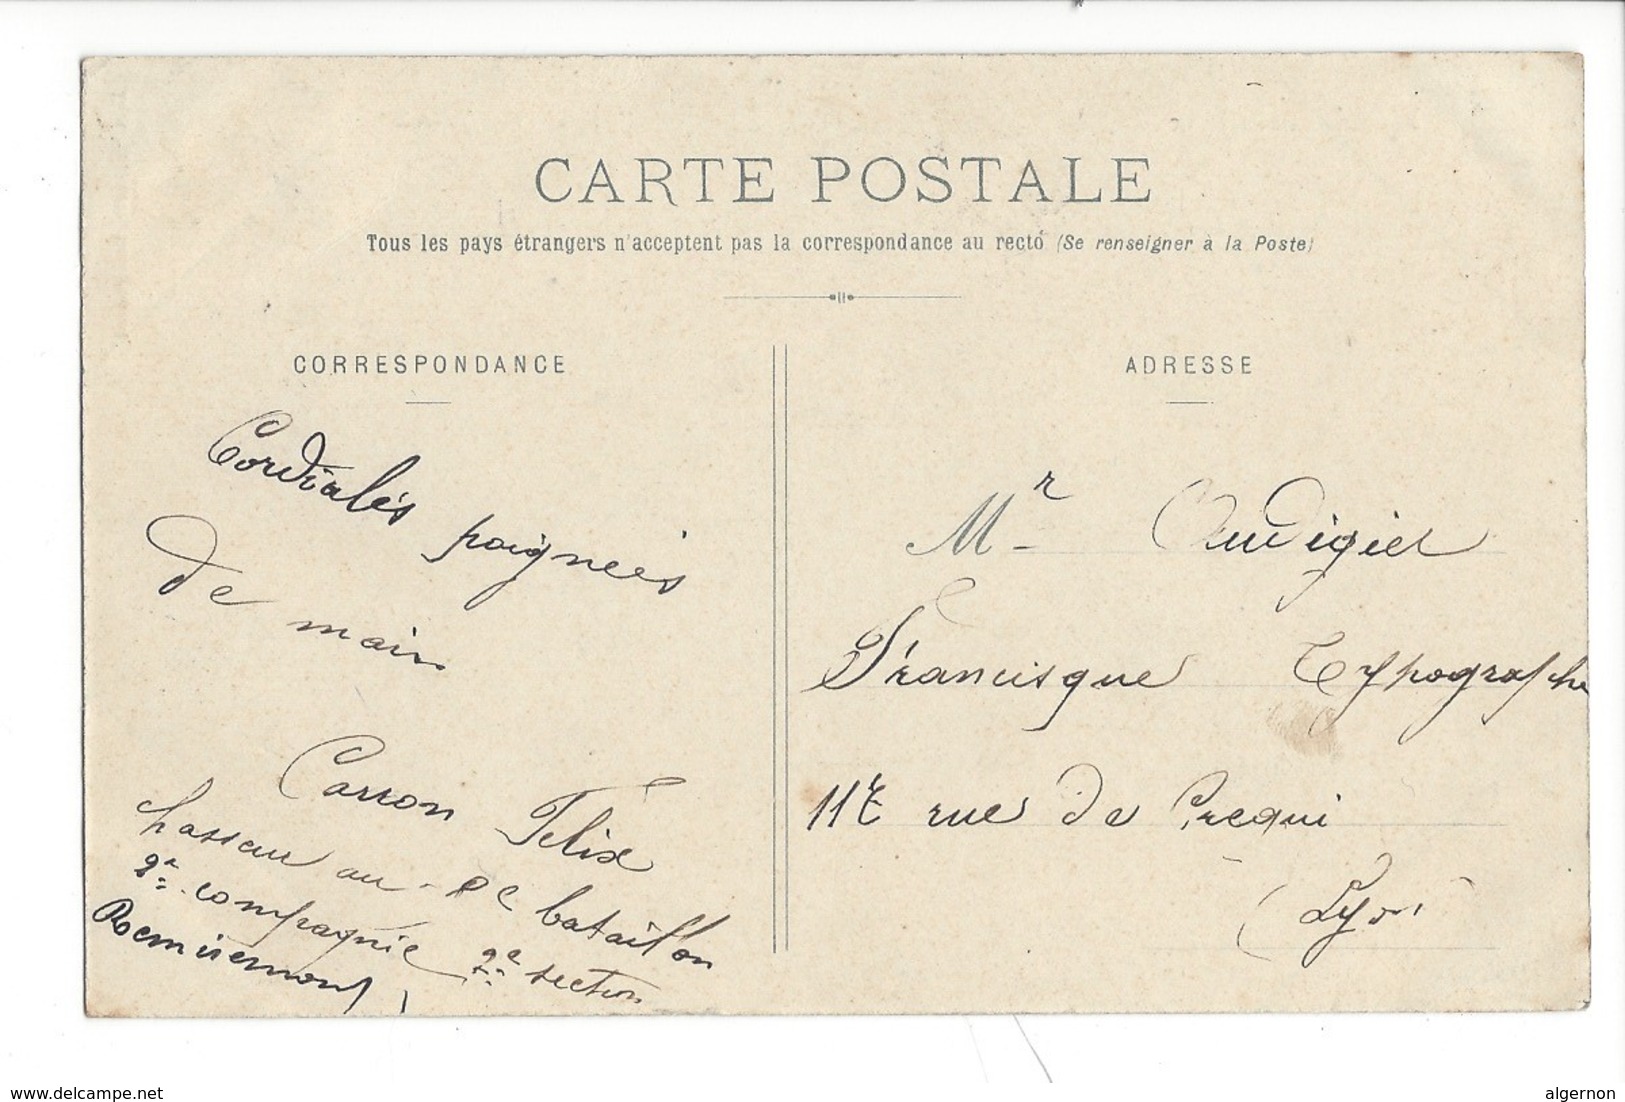 CARTE POSTALE
Tous les pays étrangers n'acceptent pas la correspondance au recto (Se renseigner à la Poste)
CORRESPONDANCE
Cordiales poignées
de main
Carron Felix
chasseur au e bataillon
2e compagnie 2e section
Remiremont
ADRESSE
Mr Audigier
Francisque Typographe
117 rue de Crequi
Lyon
delcampe.net
algernon